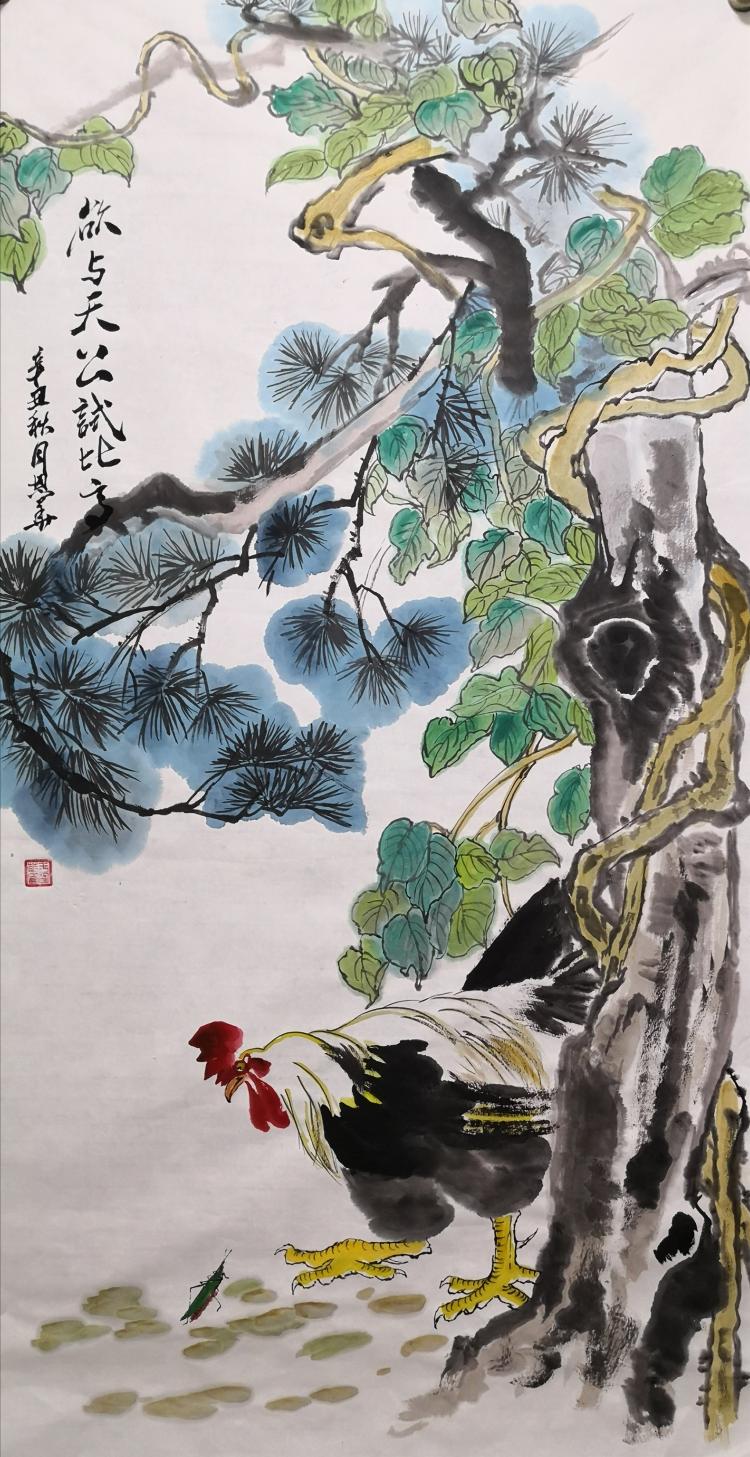 欲与天公試比高
辛丑秋月恩华